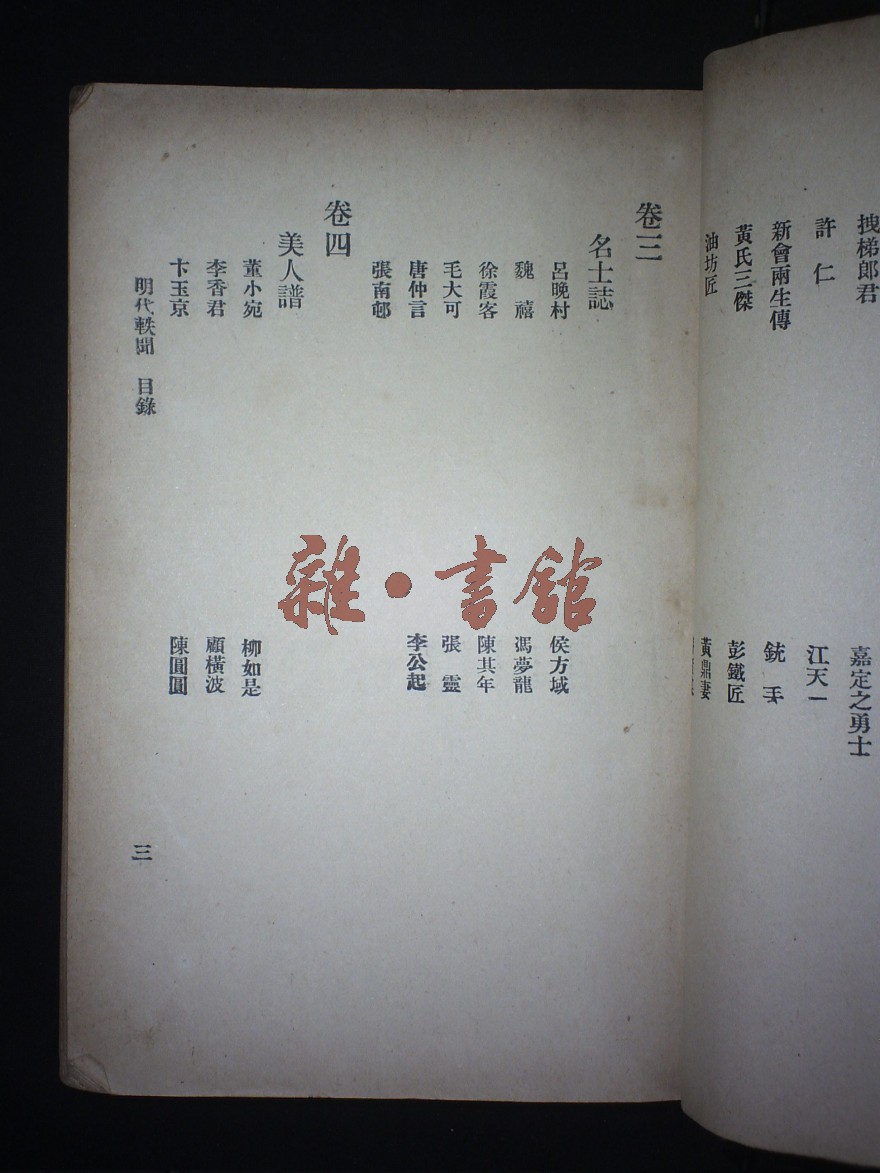 拽梯郎君
嘉定之勇士
許仁
江天一
新會兩生傳
銃手
黃氏三傑
彭鐵匠
油坊匠
黃鼎妻
卷三
名士誌
呂晚村
侯方域
魏禧
馮夢龍
徐霞客
陳其年
毛大可
張靈
唐仲言
李公起
張南邨
卷四
美人譜
董小宛
柳如是
李香君
顧橫波
卞玉京
陳圓圓
明代軼聞 目錄
三
雜·書館